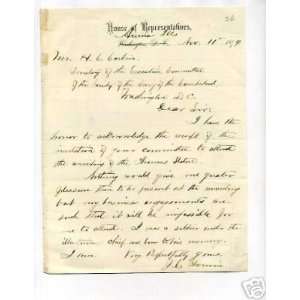 26
House of Representatives,
Washington Nov. 11th 1879
Mr. H. C. Corbin
Secretary of the Executive Committee
of the Society of the Army of the Cumberland
Washington D.C.
Dear Sir:
I have the
honor to acknowledge the receipt of the
invitation of your committee to attend
the unveiling of the Thomas Statue.
Nothing would give me greater
pleasure than to be present at the unveiling
but my business engagements are
such that it will be impossible for
me to attend. I was a soldier under the
illustrious chief we honor his memory.
I am Very Respectfully
yours
J. C.
eBay